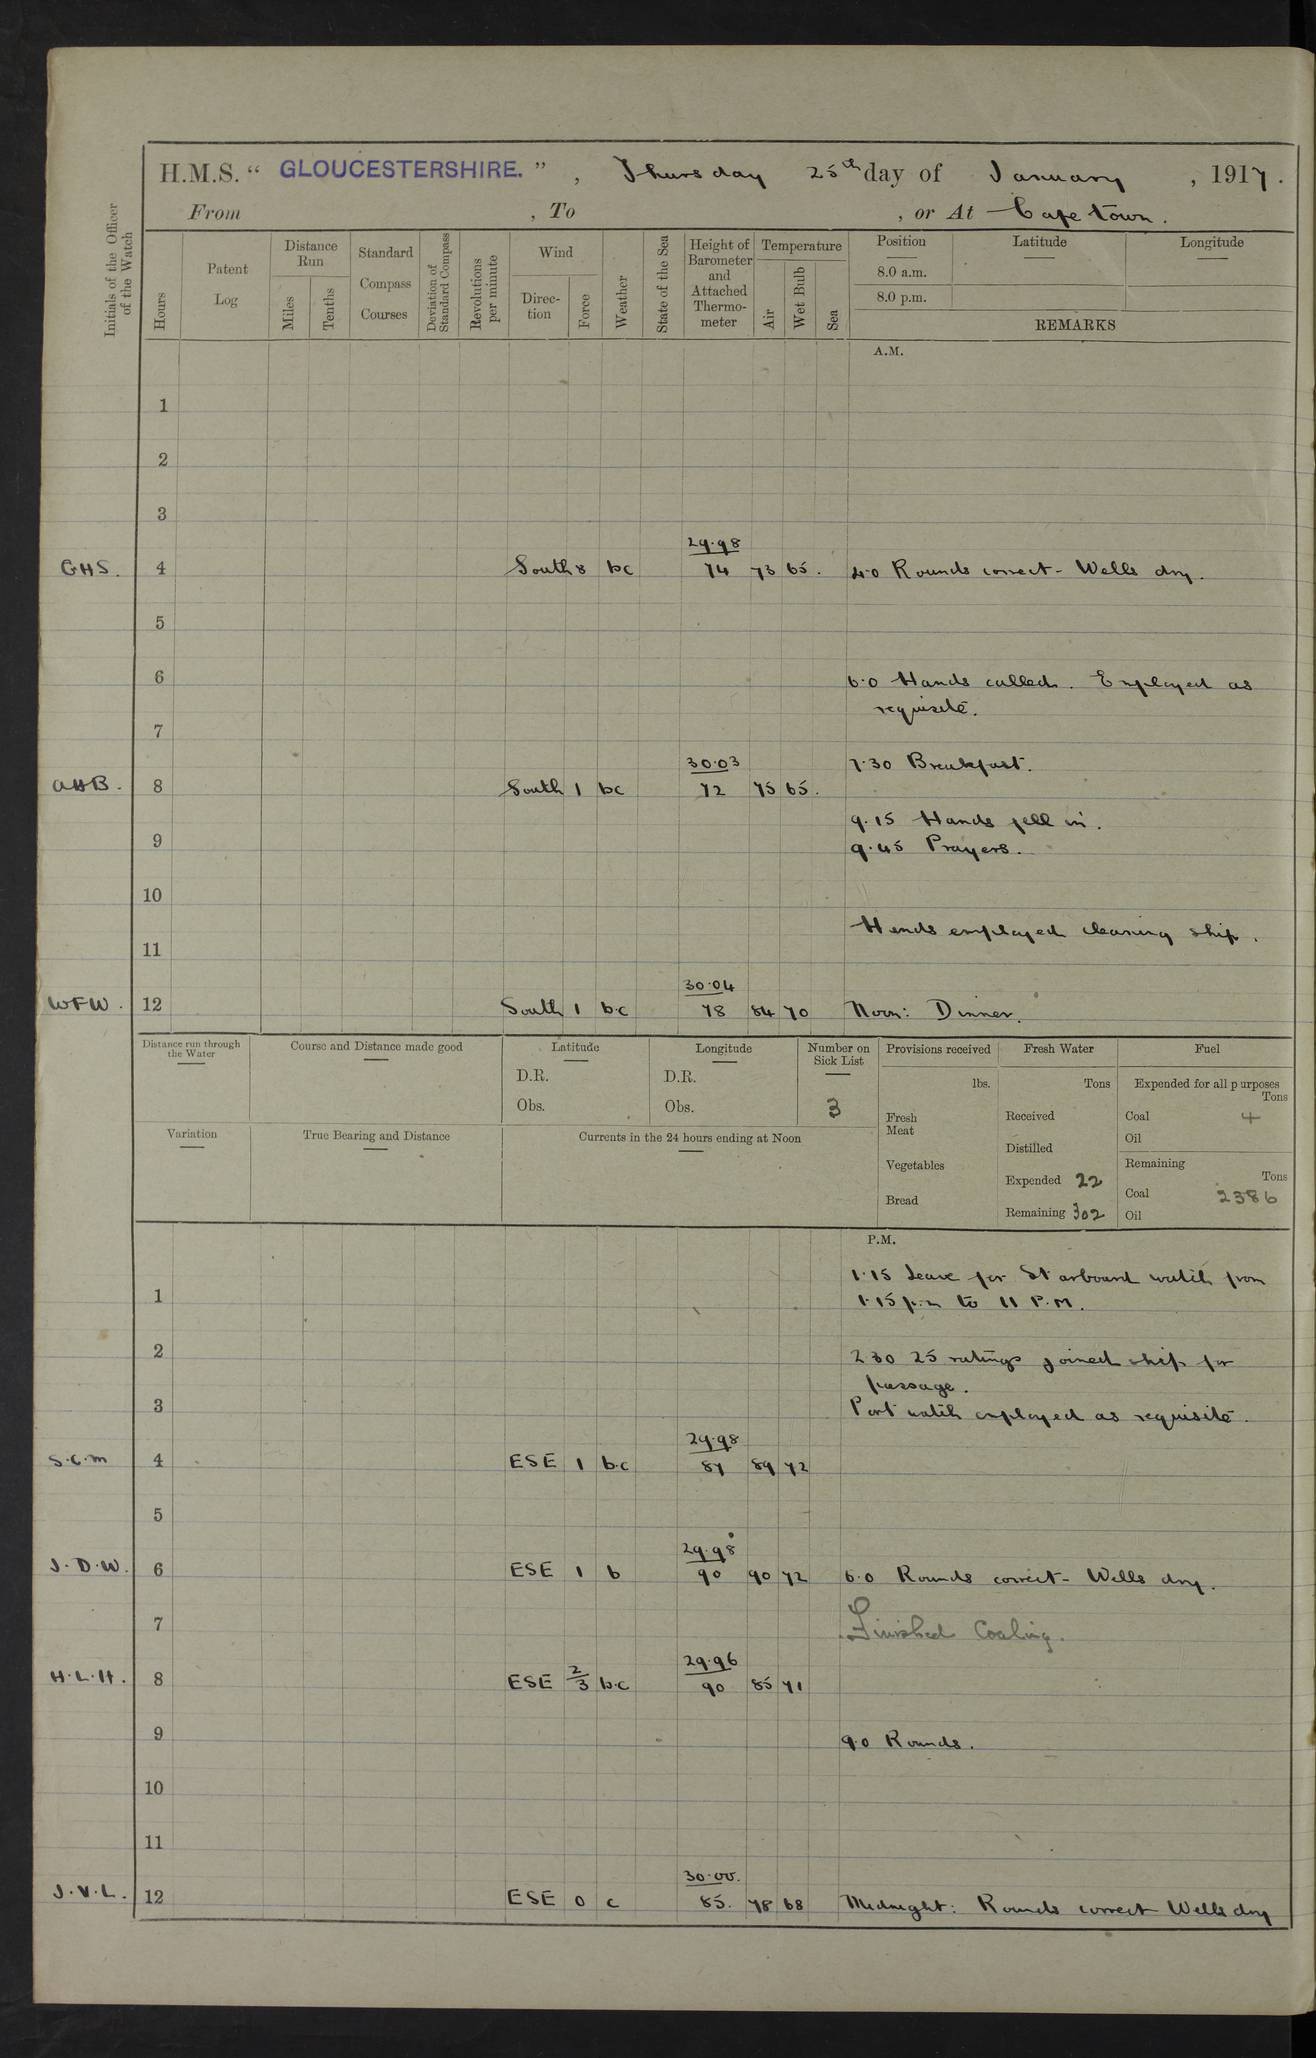 H.M.S. “ GLOUCESTERSHIRE. ” , Thursday 25th day of January , 1917.
From , To , or At Cape town.
Initials of the Officer of the Watch
Hours
Patent Log
Distance Run
Miles
Tenths
Standard Compass Courses
Deviation of Standard Compass
Revolutions per minute
Wind
Direc-tion
Force
Weather
State of the Sea
Height of Barometer and Attached Thermo-meter
Temperature
Air
Wet Bulb
Sea
Position Latitude Longitude
8.0 a.m.
8.0 p.m.
REMARKS
A.M.
1
2
3
29.98
GHS. 4 South 8 bc 74 73 65. 4.0 Rounds correct - Wells dry.
5
6 6.0 Hands called. Employed as
requisite.
7
30.03 7.30 Breakfast.
AHB. 8 South 1 bc 72 75 65.
9.15 Hands fell in.
9 9.45 Prayers.
10
Hands employed cleaning ship.
11
30.04
WFW. 12 South 1 b.c 78 84 70 Noon: Dinner.
Distance run through the Water
Course and Distance made good
Latitude
D.R.
Obs.
Longitude
D.R.
Obs.
Number on Sick List
3
Provisions received
lbs.
Fresh Meat
Vegetables
Bread
Fresh Water
Tons
Received
Distilled
Expended 22
Remaining 302
Fuel
Expended for all purposes
Tons
Coal 4
Oil
Remaining
Tons
Coal 2386
Oil
Variation
True Bearing and Distance
Currents in the 24 hours ending at Noon
P.M.
1.15 Leave for Starboard watch from
1 1.15 p.m to 11 P.M.
2 2 30 25 ratings joined ship for
passage.
3 Port watch employed as requisite.
29.98
S.C.M 4 ESE 1 b.c 87 89 72
5
29.98
J.D.W. 6 ESE 1 b 90 90 72 6.0 Rounds correct - Wells dry.
7 Finished Coaling.
29.96
H.L.H. 8 ESE 2/3 b.c 90 85 71
9 9.0 Rounds.
10
11
30.00.
J.V.L. 12 ESE 0 c 85. 78 68 Midnight: Rounds correct Wells dry